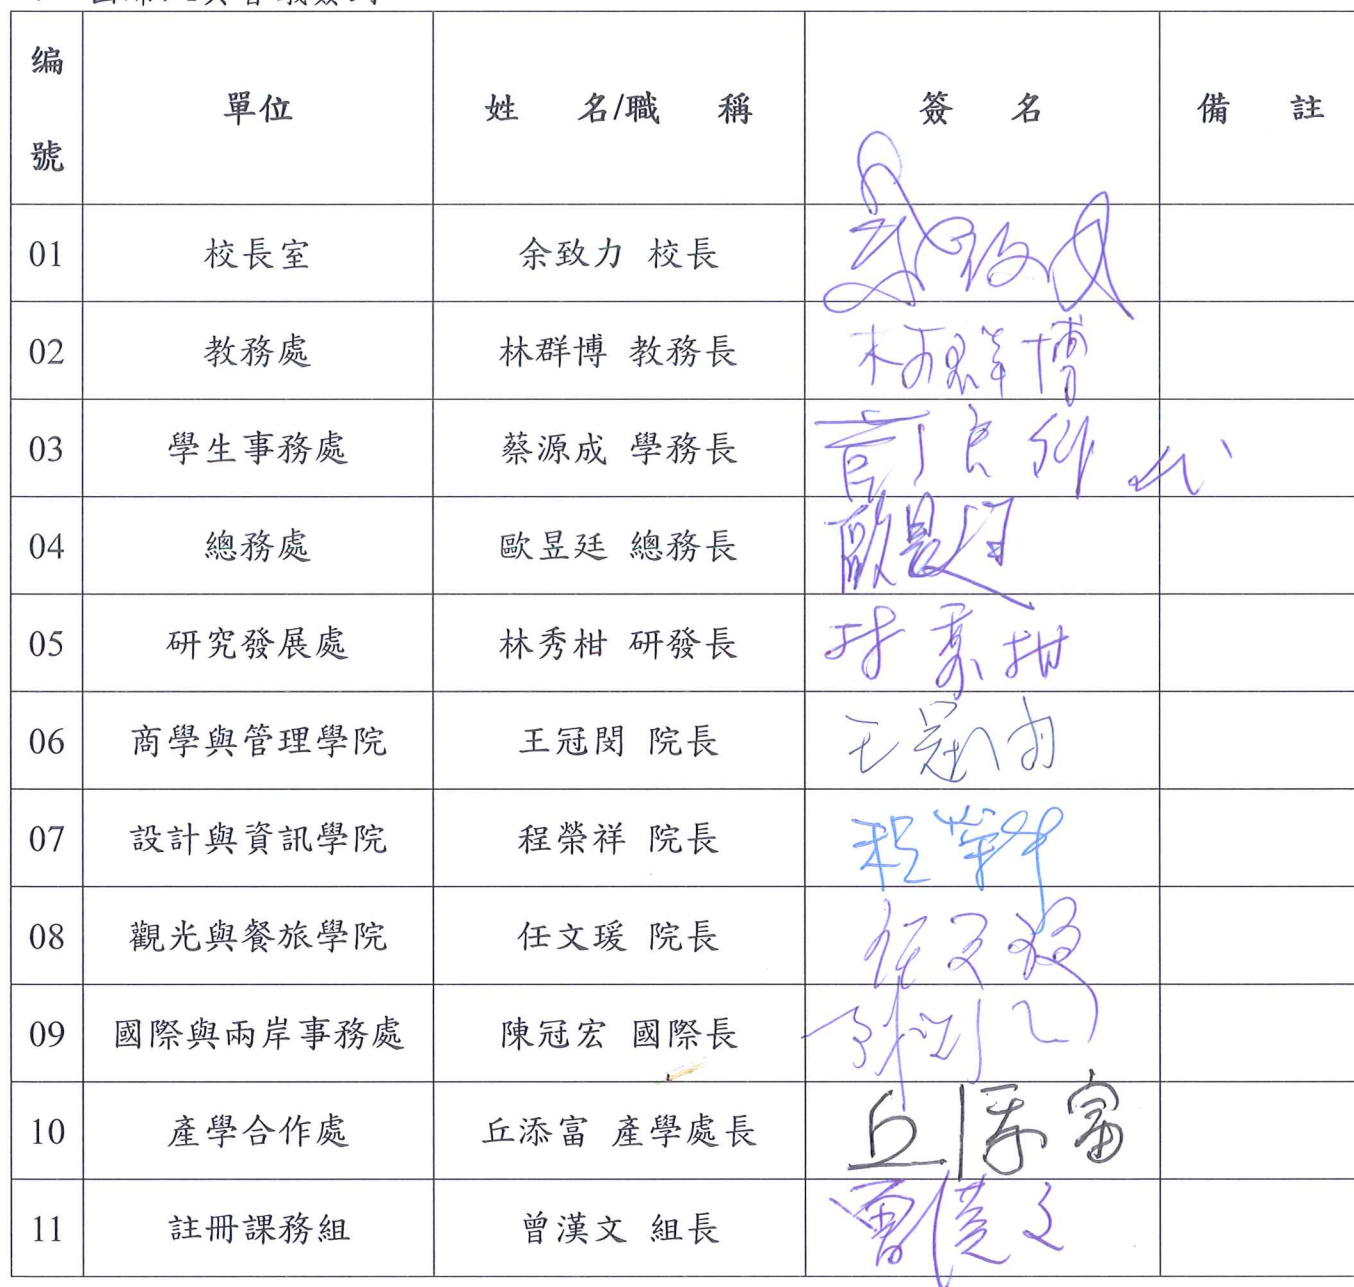 編號 單位 姓名/職稱 簽名 備註
01 校長室 余致力 校長
02 教務處 林群博 教務長 林群博
03 學生事務處 蔡源成 學務長 代
04 總務處 歐昱廷 總務長 歐昱廷
05 研究發展處 林秀柑 研發長 林秀柑
06 商學與管理學院 王冠閔 院長 王冠閔
07 設計與資訊學院 程榮祥 院長 程榮祥
08 觀光與餐旅學院 任文瑗 院長 任文瑗
09 國際與兩岸事務處 陳冠宏 國際長
10 產學合作處 丘添富 產學處長 丘添富
11 註冊課務組 曾漢文 組長 曾漢文